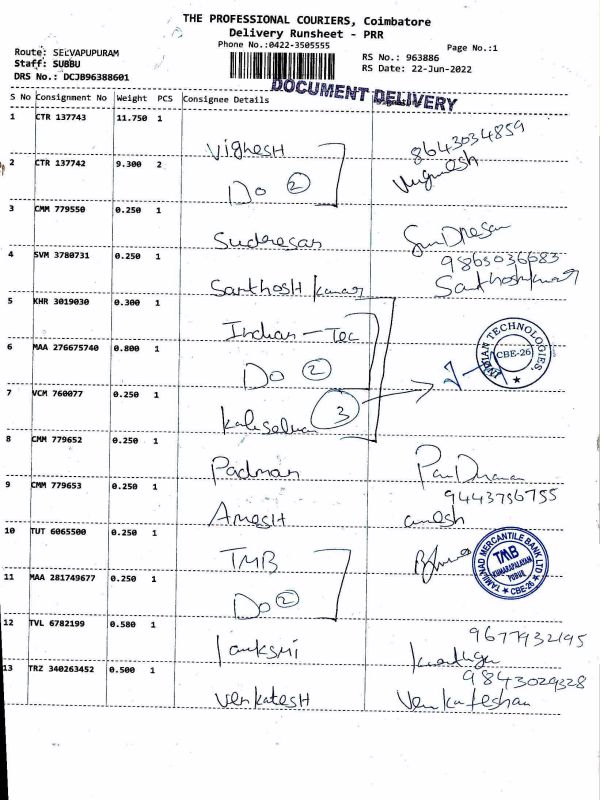 THE PROFESSIONAL COURIERS, Coimbatore
Delivery Runsheet - PRR
Phone No.:0422-3505555
Page No.:1
Route: SELVAPUPURAM
Staff: SUBBU
DRS No.: DCJB96388601
RS No.: 963886
RS Date: 22-Jun-2022
DOCUMENT DELIVERY
S No Consignment No Weight PCS Consignee Details
1 CTR 137743 11.750 1
Vighesh 8643034859
2 CTR 137742 9.300 2
Do 2
3 CMM 779550 0.250 1
Suderesan
4 SVM 3780731 0.250 1
9863036683
Santhosh kumar Santhoshkumar
5 KHR 3019030 0.300 1
Indian - Tec
6 MAA 276675740 0.800 1
Do 2
INDIAN TECHNOLOGIES,
CBE-26
7 VCM 760077 0.250 1
Kaliselvan 3
8 CMM 779652 0.250 1
Padman
9 CMM 779653 0.250 1
9443756755
Anesh anesh
10 TUT 6065500 0.250 1
TMB
TAMILNAD MERCANTILE BANK LTD
TMB
KUMARAPALAYAM
PUDUR
CBE-26
11 MAA 281749677 0.250 1
Do 2
12 TVL 6782199 0.580 1
9677932195
13 TRZ 340263452 0.500 1
9843029328
Venkatesh Venkateshan